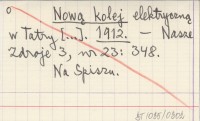 Nową kolej elektryczną
w Tatry [...]. 1912. — Nasze
Zdroje 3, nr. 23: 348.
Na Spiszu.